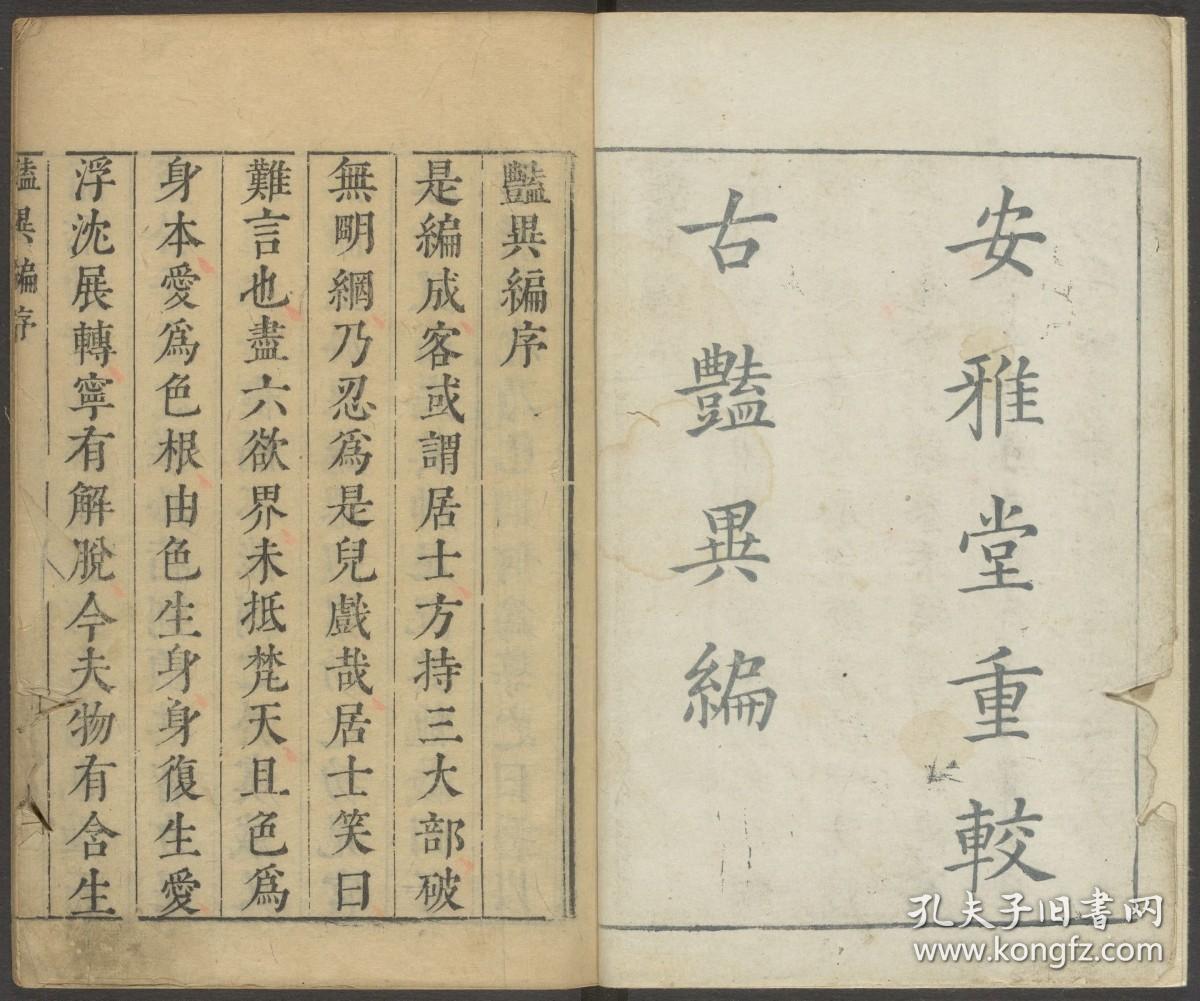 安雅堂重較
古豔異編
豔異編序
是編成客或謂居士方持三大部破
無明網乃忍爲是兒戲哉居士笑曰
難言也盡六欲界未抵梵天且色爲
身本愛爲色根由色生身身復生愛
浮沈展轉寧有解脫今夫物有含生
豔異編序
孔夫子旧书网
www.kongfz.com